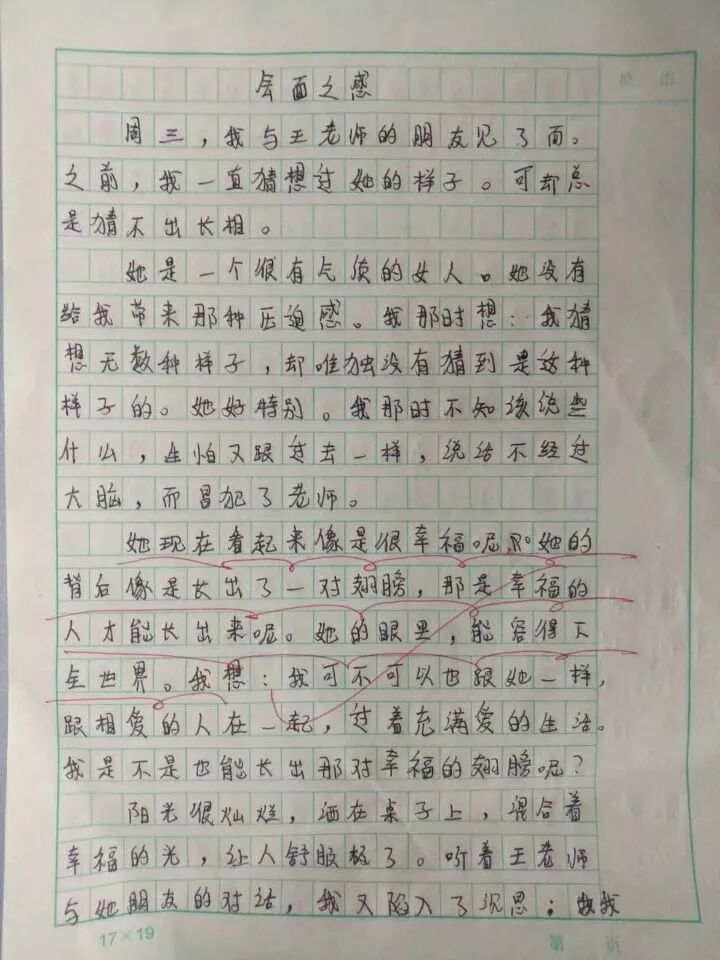 会面之感
批语
周三，我与王老师的朋友见了面。
之前，我一直猜想过她的样子。可却总
是猜不出长相。
她是一个很有气质的女人。她没有
给我带来那种压迫感。我那时想：我猜
想无数种样子，却唯独没有猜到是这种
样子的。她好特别。我那时不知该说些
什么，生怕又跟过去一样，说话不经过
大脑，而冒犯了老师。
她现在看起来像是很幸福呢，她的
背后像是长出了一对翅膀，那是幸福的
人才能长出来呢。她的眼里，能容得下
全世界。我想：我可不可以也跟她一样，
跟相爱的人在一起，过着充满爱的生活。
我是不是也能长出那对幸福的翅膀呢？
阳光很灿烂，洒在桌子上，混合着
幸福的光，让人舒服极了。听着王老师
与她朋友的对话，我又陷入了沉思；我
17×19
第 页